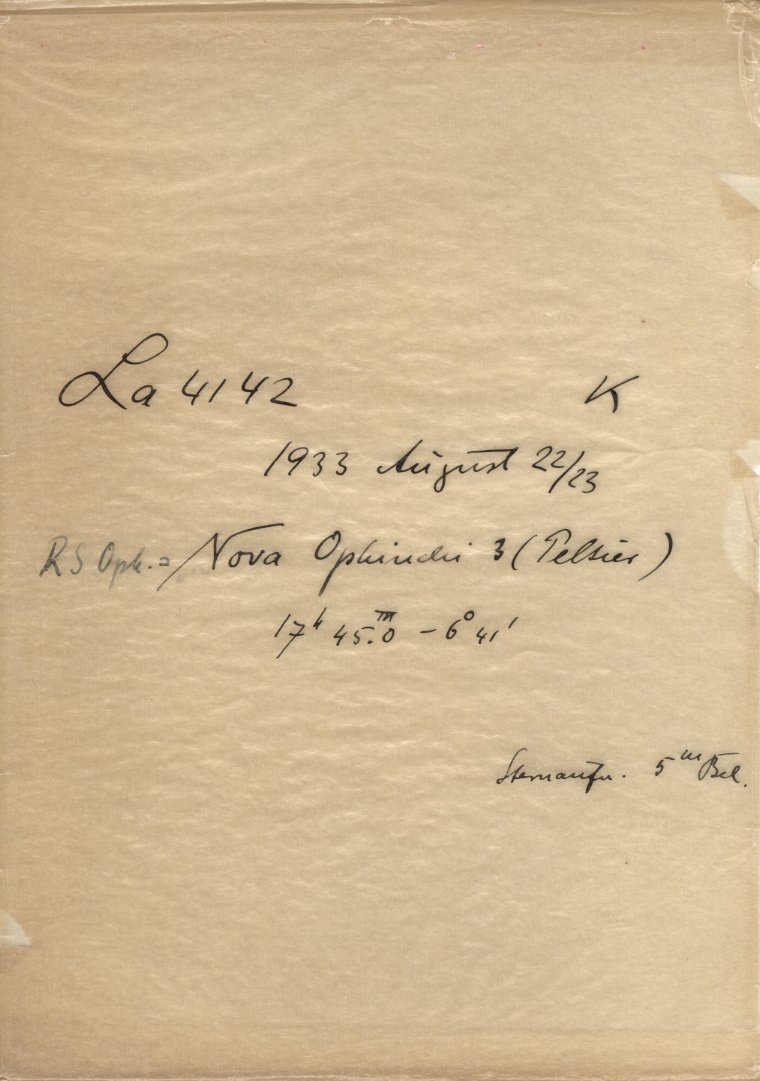 La 4142 K
1933 August 22/23
RS Oph. = Nova Ophiuchi 3 (Peltier)
17ʰ 45.ᵐ0 - 6° 41'
Sternaufn. 5ᵐ Bel.